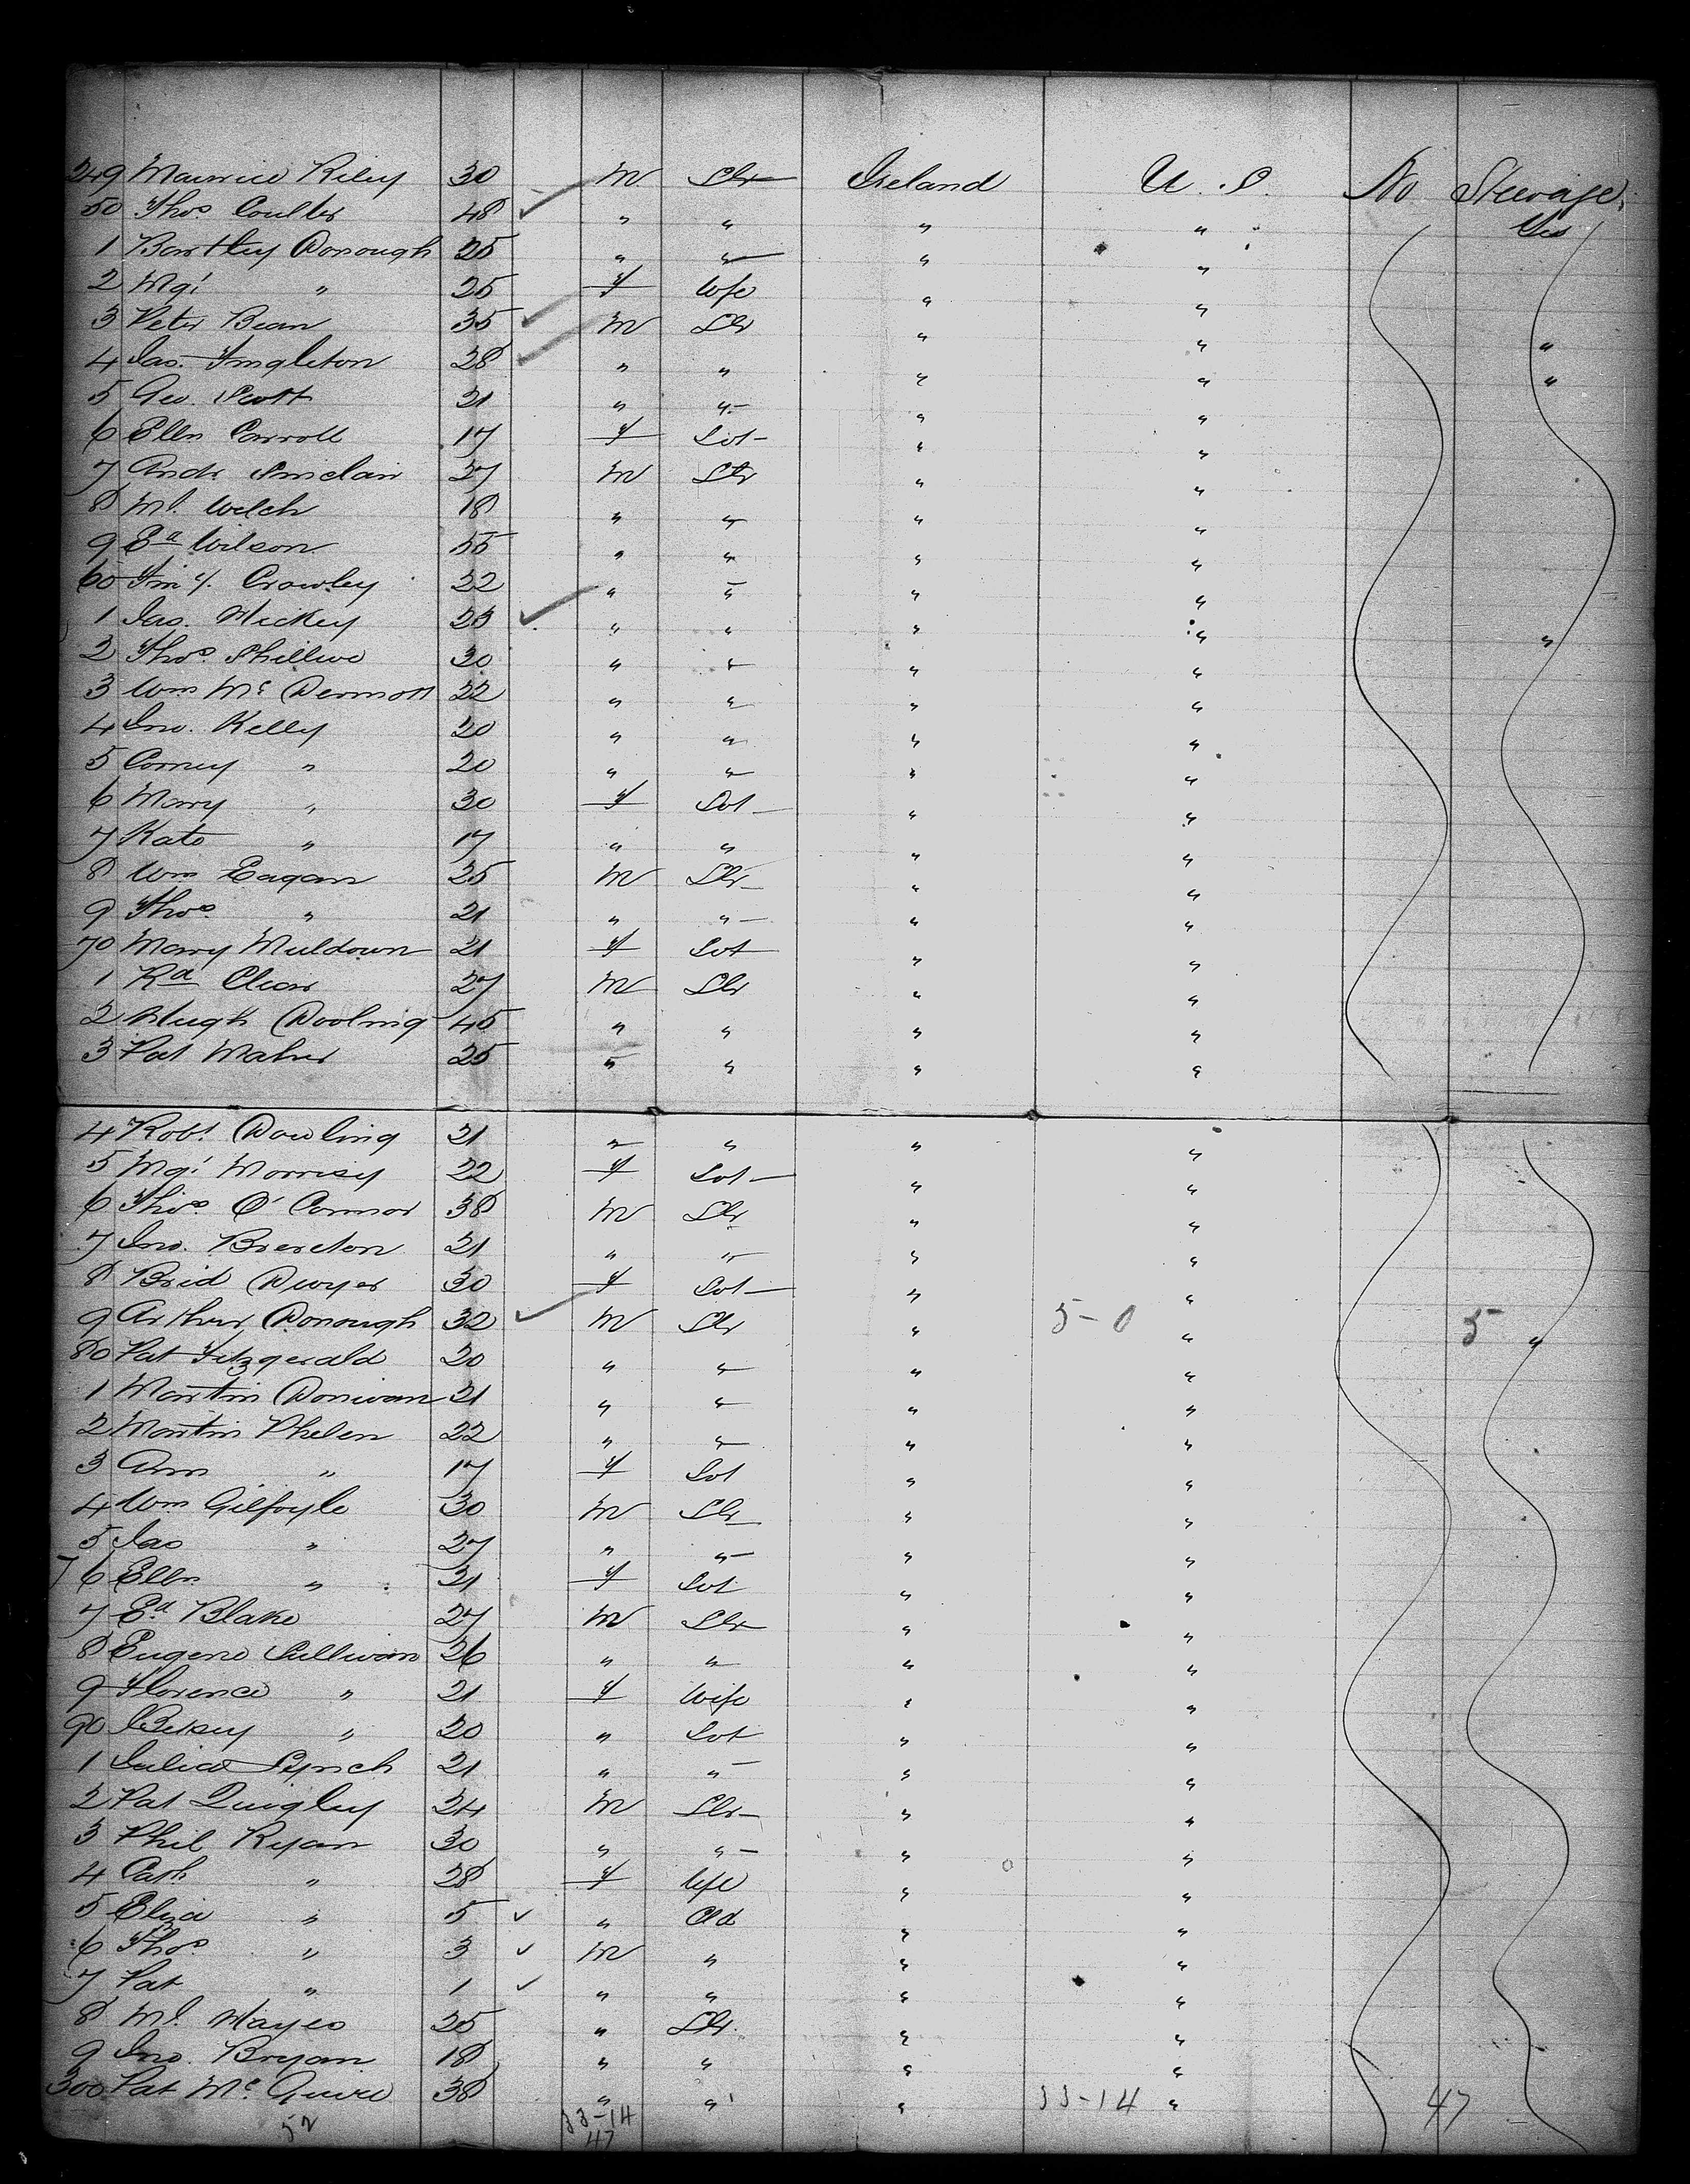 249 Maurice Riley 30 M Lbr Ireland U.S. No Steerage
50 Thos Coulter 48 " " " " Yes
1 Bartley Donough 25 " " " "
2 Mgt " 25 f Wfe " "
3 Peter Bean 35 M Lbr " " "
4 Jas. Singleton 28 " " " " "
5 Geo. Scott 21 " " " "
6 Ellen Carroll 17 f Svt " "
7 Andr. Sinclair 27 M Lbr " "
8 Ml. Welch 18 " " " "
9 Ed Wilson 55 " " " "
60 Timy. Crowley 22 " " " "
1 Jas. Hickey 23 " " " " "
2 Thos. 30 " " " "
3 Wm McDermott 22 " " " "
4 Jno. Kelly 20 " " " "
5 Corney " 20 " " " "
6 Mary " 30 f Svt " "
7 Kate " 17 " " " "
8 Wm Eagan 25 M Lbr " "
9 Thos " 21 " " " "
70 Mary Muldown 21 f Svt " "
1 Rd Clear 27 M Lbr " "
2 Hugh Dooling 45 " " " "
3 Pat Maher 25 " " " "
4 Robt Dowling 21 " " " "
5 Mgt Morrisy 22 f Svt " "
6 Thos. O'Connor 38 M Lbr " "
7 Jno. Brereton 21 " " " "
8 Brid Dwyer 30 f Svt " "
9 Arthur Donough 32 M Lbr " 5-0 " 5 "
80 Pat Fitzgerald 20 " " " "
1 Martin Donivan 21 " " " "
2 Martin Phelen 22 " " " "
3 Ann " 17 f Svt " "
4 Wm Gilfoyle 30 M Lbr " "
5 Jas " 27 " " " "
6 Ellen " 21 f Svt " "
7 Ed Blake 27 M Lbr " "
8 Eugene Sullivan 26 " " " "
9 Florence " 21 f Wife " "
90 Betsey " 20 " Svt " "
1 Julia Lynch 21 " " " "
2 Pat Quigley 24 M Lbr " "
3 Phil Ryan 30 " " " "
4 Cath " 28 f Wfe " "
5 Eliza " 5 " Cld " "
6 Thos " 3 M " " "
7 Pat " 1 " " " "
8 Ml. Hayes 25 " Lbr. " "
9 Jno. Bryan 18 " " " "
300 Pat McGuire 38 " " " 33-14 " 47
52 33-14
47